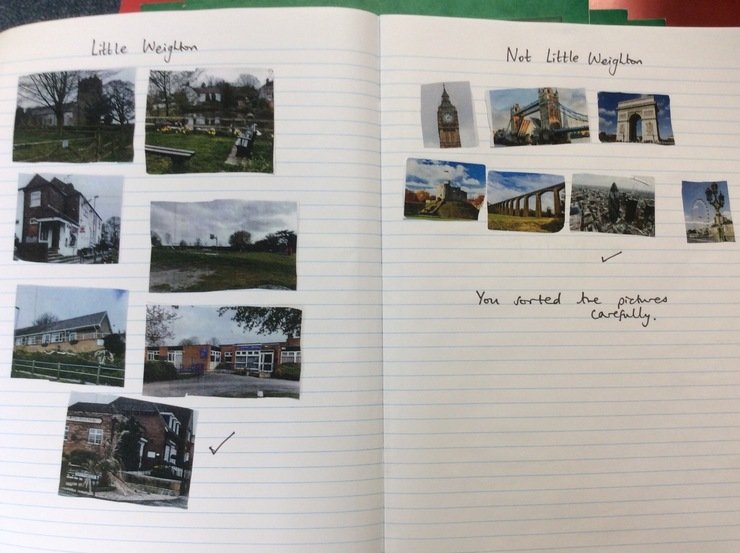 Little Weighton
Not Little Weighton
You sorted the pictures
carefully.